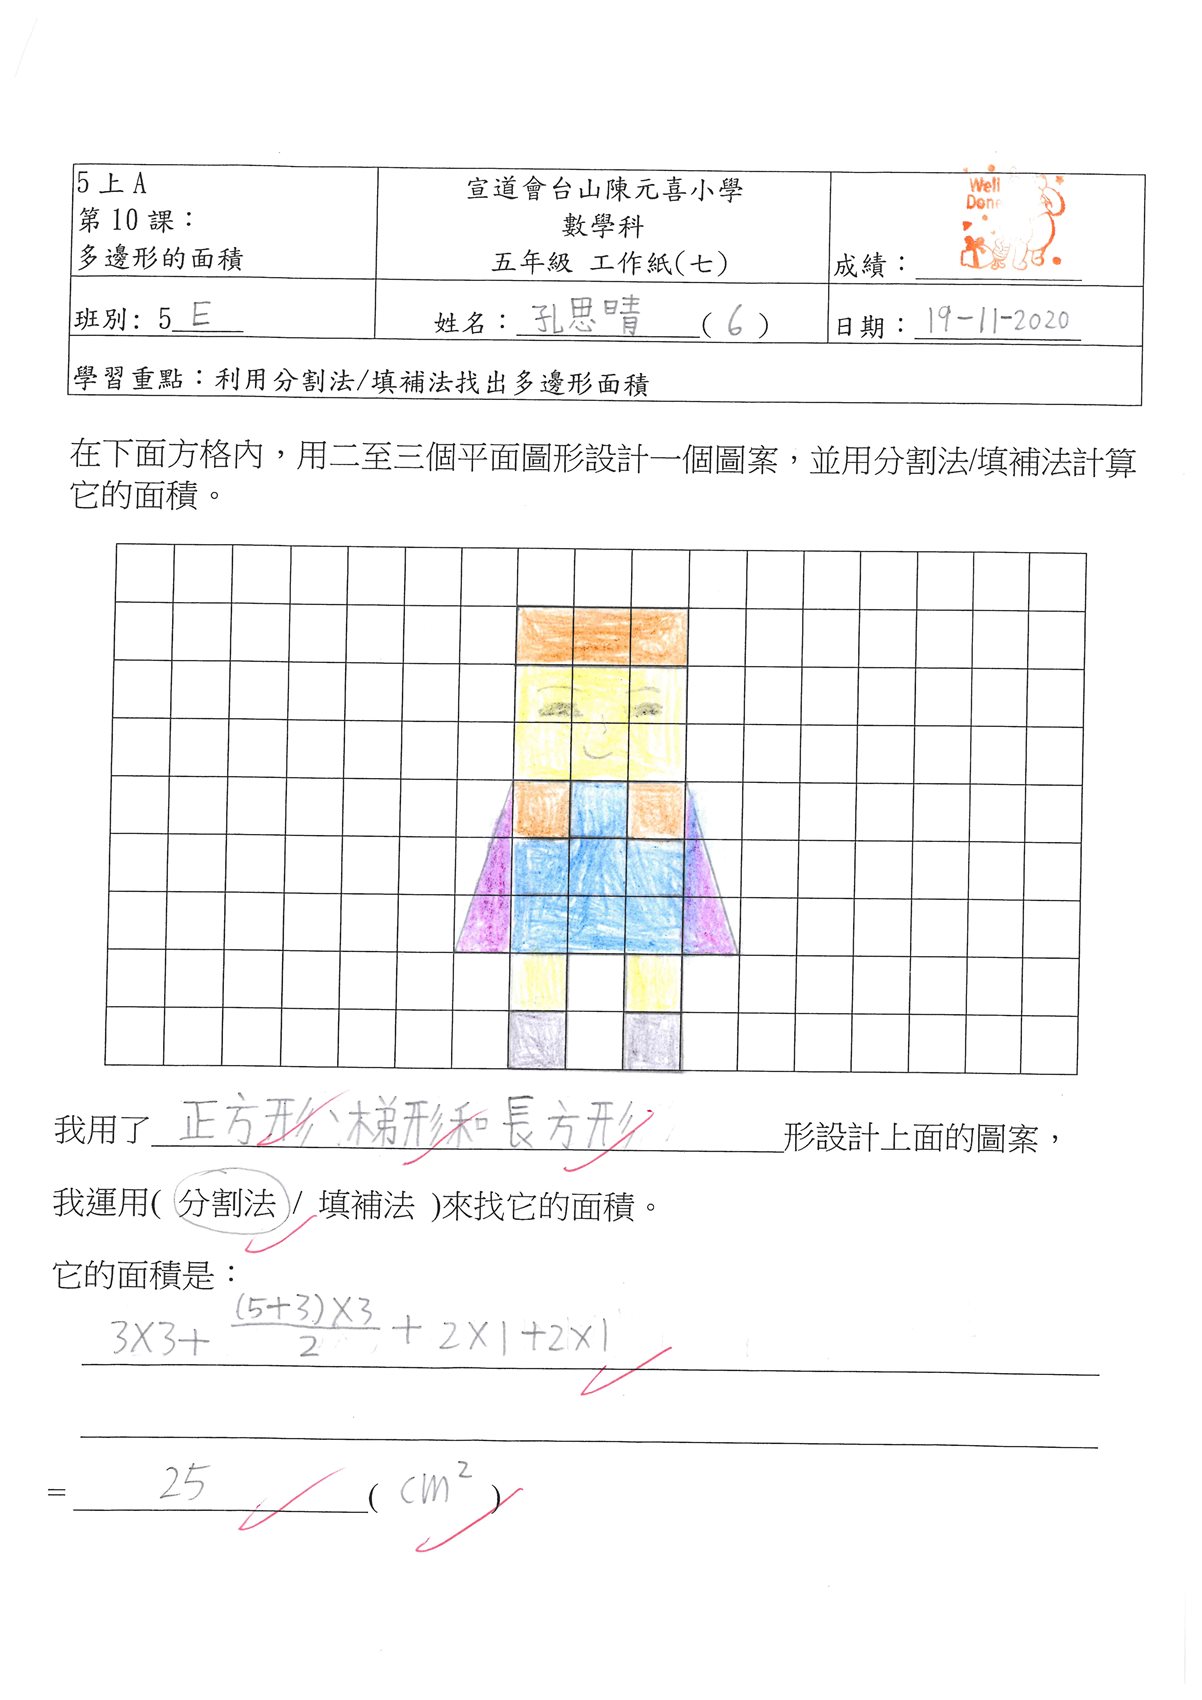 5上A
第10課：
多邊形的面積
宣道會台山陳元喜小學
數學科
五年級 工作紙(七)
Well
Done
成績：
班別: 5 E
姓名：孔思晴 ( 6 )
日期：19-11-2020
學習重點：利用分割法/填補法找出多邊形面積
在下面方格內，用二至三個平面圖形設計一個圖案，並用分割法/填補法計算
它的面積。
我用了 正方形、梯形和長方形 形設計上面的圖案，
我運用( 分割法 / 填補法 )來找它的面積。
它的面積是：
3×3+ (5+3)×3/2 + 2×1+2×1
= 25 ( cm² )